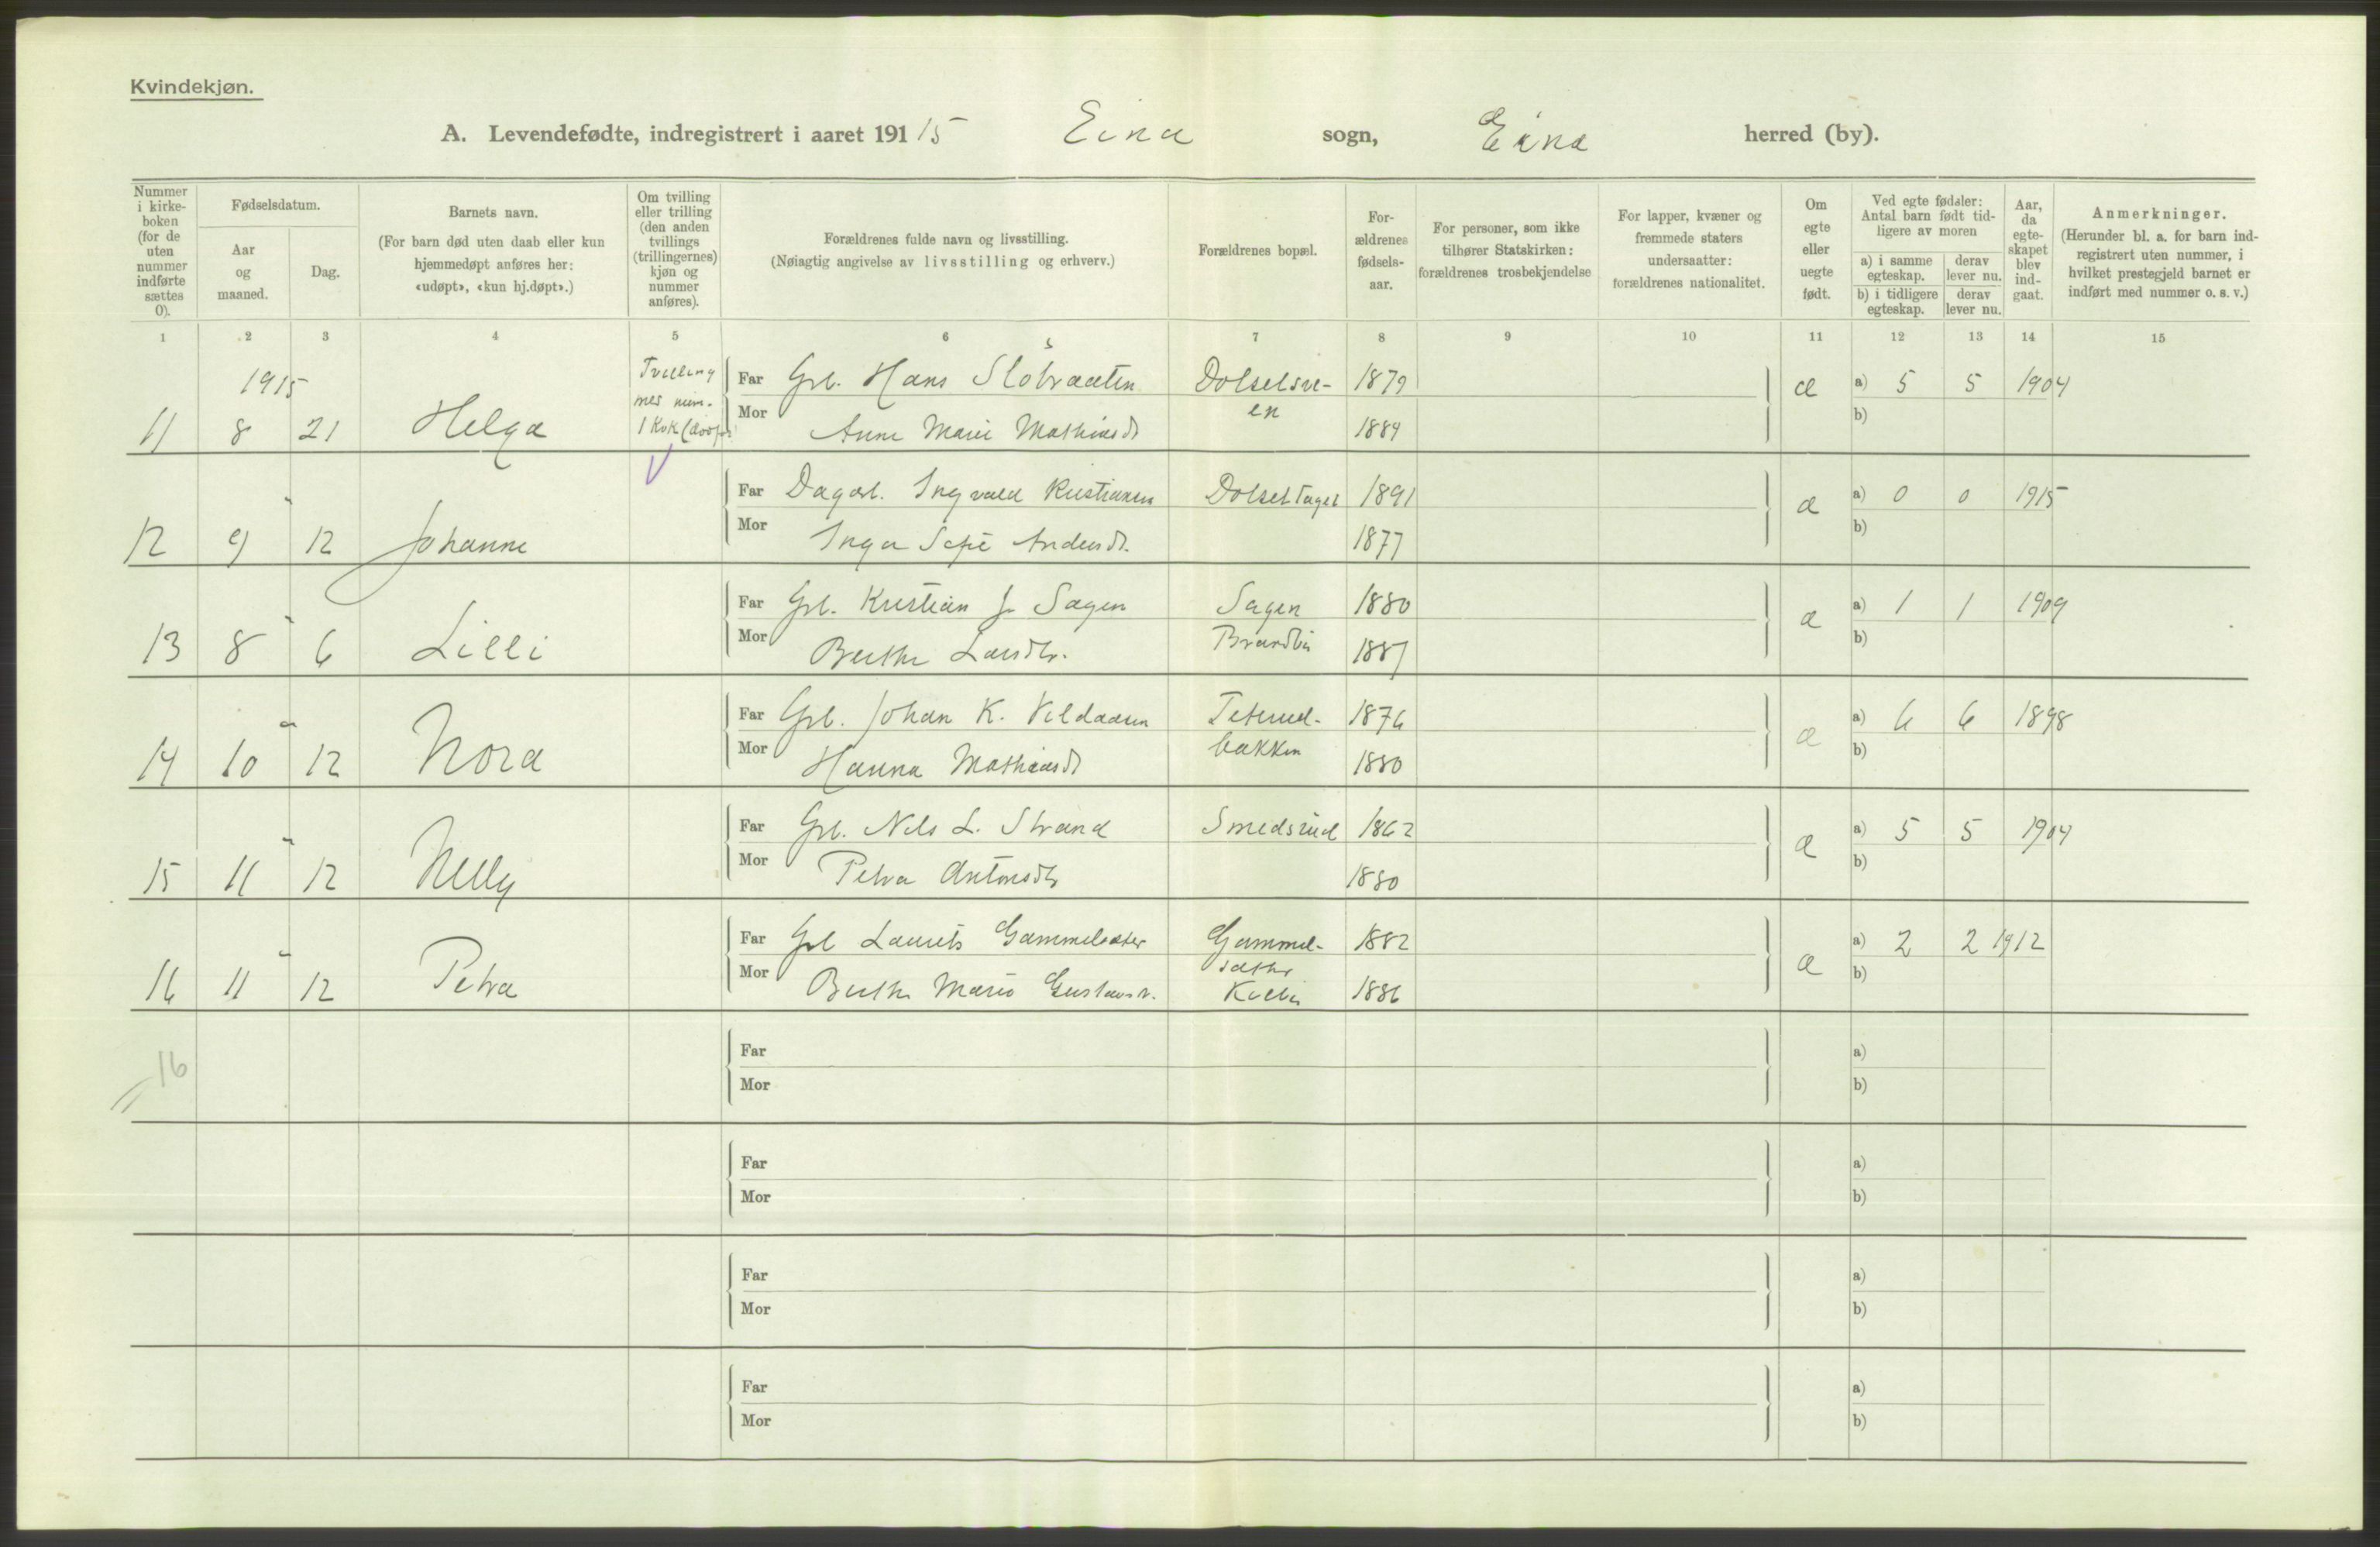 Kvindekjøn.
A. Levendefødte, indregistrert i aaret 191 15 Eina sogn, Eina herred (by).
Nummer i kirke-boken (for de uten nummer indførte sættes 0).
Fødselsdatum.
Aar og maaned.
Dag.
Barnets navn.
(For barn død uten daab eller kun hjemmedøpt anføres her: «udøpt», «kun hj.døpt».)
Om tvilling eller trilling (den anden tvillings (trillingernes) kjøn og nummer anføres).
Forældrenes fulde navn og livsstilling.
(Nøiagtig angivelse av livsstilling og erhverv.)
Forældrenes bopæl.
For-ældrenes fødsels-aar.
For personer, som ikke tilhører Statskirken: forældrenes trosbekjendelse
For lapper, kvæner og fremmede staters undersaatter: forældrenes nationalitet.
Om egte eller uegte født.
Ved egte fødsler: Antal barn født tid-ligere av moren
a) i samme egteskap. derav lever nu.
b) i tidligere egteskap. derav lever nu.
Aar, da egte-skapet blev ind-gaat.
Anmerkninger.
(Herunder bl. a. for barn ind-registrert uten nummer, i hvilket prestegjeld barnet er indført med nummer o. s. v.)
1 2 3 4 5 6 7 8 9 10 11 12 13 14 15
1915 Tvilling Far Grb. Hans Slobraaten Dolselsve- 1879 æ a) 5 5 1904
11 8 21 Helga Mor Anne Marie Mathiasdt en 1884 b)
Far Dagarb. Ingvald Kristiansen Dolset 1891 æ a) 0 0 1915
12 9 12 Johanne Mor Inga Sofie Andersdt. 1877 b)
Far Grb. Kristian J. Sagen Sagen 1880 æ a) 1 1 1909
13 8 6 Lilli Mor Berthe Larsdtr. 1887 b)
Far Grb. Johan K. Vildaasen Teterud- 1876 æ a) 6 6 1898
14 10 12 Nora Mor Hanna Mathiasdt bakken 1880 b)
Far Grb. Nils L. Strand Smedsrud 1862 æ a) 5 5 1904
15 11 12 Nelly Mor Petra Antonsdtr 1880 b)
Far Grb Laurits Gammelsæter Gammel- 1882 æ a) 2 2 1912
16 11 12 Petra Mor Berthe Marie Gustavsdt. sæther 1886 b)
16 Far a)
Mor b)
Far a)
Mor b)
Far a)
Mor b)
Far a)
Mor b)